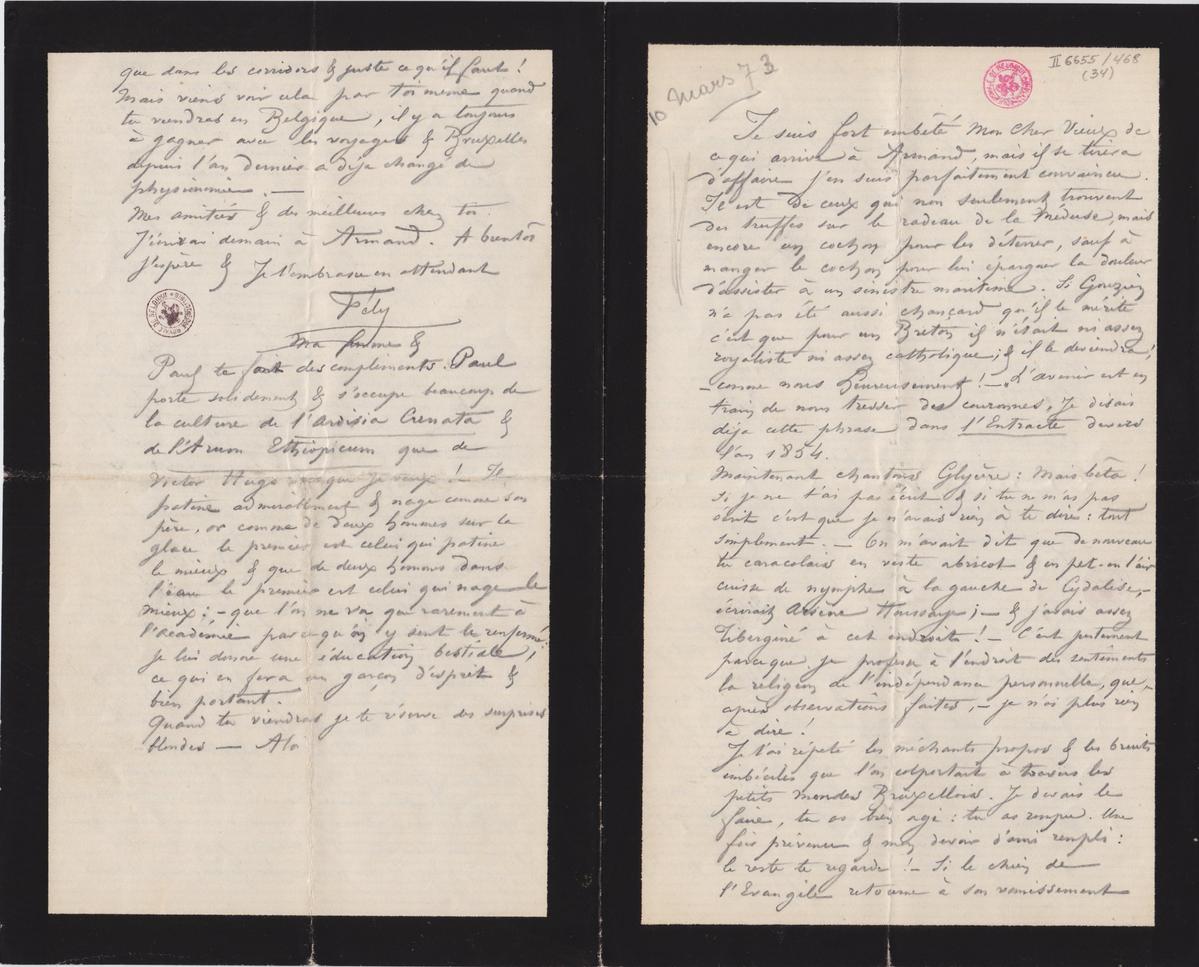 que dans les corridors & juste ce qu'il faut !
Mais viens voir cela par toi même quand
tu viendras en Belgique, il y a toujours
à gagner avec les voyages & Bruxelles
depuis l'an dernier a déja changé de
physionomie. —
Mes amitiés & des meilleurs chez toi.
J'écrirai demain à Armand. A bientôt
j'espère & Je t'embrasse en attendant
Fély
Ma femme &
Paul te font des compliments. Paul
porte solidement & s'occupe beaucoup de
la culture de l'Ardisia Crenata &
de l'Arum Ethiopicum que de
Victor Hugo que je veux ! Il
patine admirablement & nage comme son
père, or comme de deux hommes sur la
glace le premier est celui qui patine
le mieux & que de deux hommes dans
l'eau le premier est celui qui nage le
mieux; – que l'on ne va que rarement à
l'Académie parcequ'on y sent le renfermé
je lui donne une éducation bestiale,
ce qui en fera un garçon d'esprit &
bien portant.
Quand tu viendras je te réserve des surprises
blondes —
II 6655/468
(34)
10 Mars 73
Je suis fort embêté Mon Cher Vieux de
ce qui arrive à Armand, mais il se tirera
d'affaire j'en suis parfaitement convaincu.
Il est De ceux qui non seulement trouvent
des truffes sur le radeau de la Méduse, mais
encore un cochon pour les déterrer, sauf à
manger le cochon pour lui épargner la douleur
d'assister à un sinistre maritime. Si Gouzien
n'a pas été aussi chançard qu'il le mérite
c'est que pour un Breton il n'était ni assez
royaliste ni assez catholique; & il le deviendra !
– comme nous heureusement ! – L'avenir est en
train de nous tresser des couronnes, Je disais
déja cette phrase dans l'Entracte devers
l'an 1854.
Maintenant chantons Glycère : Mais bêta !
Si je ne t'ai pas écrit & si tu ne m'as pas
écrit c'est que je n'avais rien à te dire : tout
simplement. – On m'avait dit que de nouveau
tu caracolais en veste abricot & en pet-en l'air
cuisse de nymphe à la gauche de Cydalise, –
écrirait Arsène Houssaye; – & j'avais assez
Tiberginé à cet endroit ! – C'est justement
parceque je professe à l'endroit des sentiments
la religion de l'indépendance personnelle, que, –
après observations faites, – je n'ai plus rien
à dire !
Je t'ai répété les méchants propos & les bruits
imbéciles que l'on colportait à travers les
petits mondes Bruxellois. Je devais le
faire, tu as bien agi : tu as rompu. Une
fois prévenu & mon devoir d'ami rempli :
le reste te regarde ! – Si le chien de
l'Evangile retourne à son vomissement